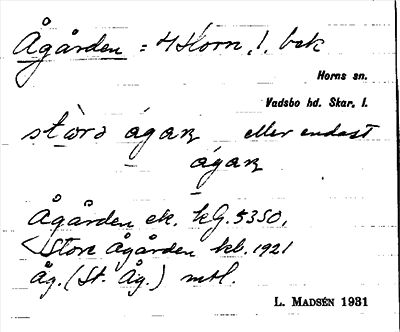 Ågården = 4 Horn, 1. bek
Horns sn.
Vadsbo hd. Skar. l.
eller endast
Ågården ek. kG. 5350,
Store Ågården kb. 1921
Åg. (St. Åg.) mtl.
L. MADSÉN 1931